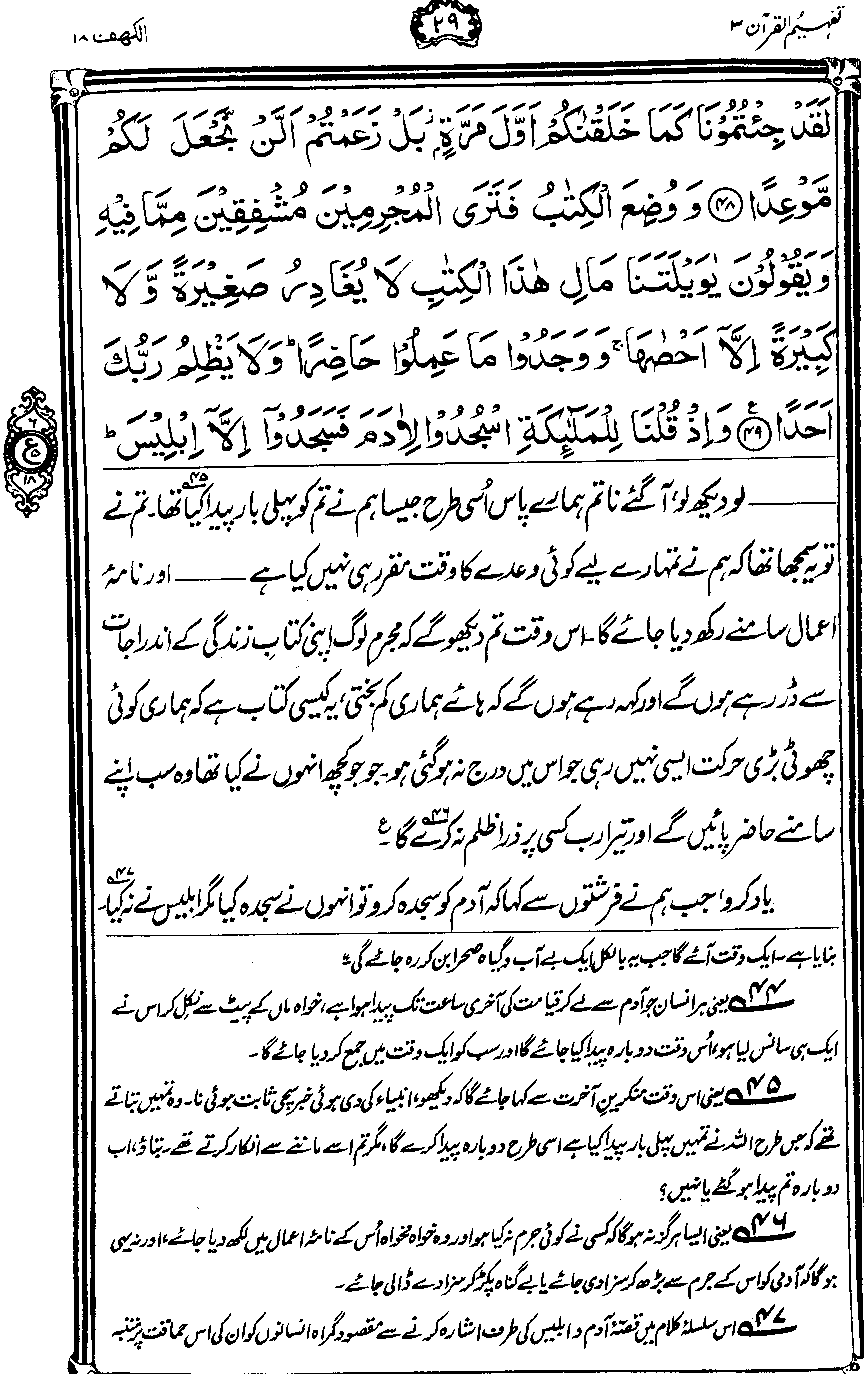 تفہیم القرآن ۳
۲۹
الکھف ۱۸
لَقَدْ جِئْتُمُوْنَا كَمَا خَلَقْنٰكُمْ اَوَّلَ مَرَّةٍۢ ؗ بَلْ زَعَمْتُمْ اَلَّنْ نَّجْعَلَ لَكُمْ
مَّوْعِدًا ﴿۴۸﴾ وَ وُضِعَ الْكِتٰبُ فَتَرَى الْمُجْرِمِيْنَ مُشْفِقِيْنَ مِمَّا فِيْهِ
وَيَقُوْلُوْنَ يٰوَيْلَتَنَا مَالِ هٰذَا الْكِتٰبِ لَا يُغَادِرُ صَغِيْرَةً وَّلَا
كَبِيْرَةً اِلَّاۤ اَحْصٰىهَا ۚ وَوَجَدُوْا مَا عَمِلُوْا حَاضِرًا ؕ وَلَا يَظْلِمُ رَبُّكَ
اَحَدًا ﴿۴۹﴾ ع وَاِذْ قُلْنَا لِلْمَلٰٓئِكَةِ اسْجُدُوْا لِاٰدَمَ فَسَجَدُوْۤا اِلَّاۤ اِبْلِيْسَ ؕ
۶
ع
۵
۱۸
——— لو دیکھ لو، آ گئے نا تم ہمارے پاس اُسی طرح جیسا ہم نے تم کو پہلی بار پیدا کیا تھا۔۴۵ تم نے
تو یہ سمجھا تھا کہ ہم نے تمہارے لیے کوئی وعدے کا وقت مقرر ہی نہیں کیا ہے ——— اور نامۂ
اعمال سامنے رکھ دیا جائے گا۔ اس وقت تم دیکھو گے کہ مجرم لوگ اپنی کتابِ زندگی کے اندراجات
سے ڈر رہے ہوں گے اور کہہ رہے ہوں گے کہ ہائے ہماری کم بختی، یہ کیسی کتاب ہے کہ ہماری کوئی
چھوٹی بڑی حرکت ایسی نہیں رہی جو اس میں درج نہ ہو گئی ہو۔ جو جو کچھ انہوں نے کیا تھا وہ سب اپنے
سامنے حاضر پائیں گے اور تیرا رب کسی پر ذرا ظلم نہ کرے گا۔۴۶ ع
یاد کرو، جب ہم نے فرشتوں سے کہا کہ آدم کو سجدہ کرو تو انہوں نے سجدہ کیا مگر ابلیس نے نہ کیا۔۴۷
بنایا ہے۔ ایک وقت آئے گا جب یہ بالکل ایک بے آب و گیاہ صحرا بن کر رہ جائے گی۔"
۴۴ یعنی ہر انسان جو آدم سے لے کر قیامت کی آخری ساعت تک پیدا ہوا ہے، خواہ ماں کے پیٹ سے نکل کر اس نے
ایک ہی سانس لیا ہو، اُس وقت دوبارہ پیدا کیا جائے گا اور سب کو ایک وقت میں جمع کر دیا جائے گا۔
۴۵ یعنی اس وقت منکرینِ آخرت سے کہا جائے گا کہ دیکھو، انبیاء کی دی ہوئی خبر سچی ثابت ہوئی نا۔ وہ تمہیں بتاتے
تھے کہ جس طرح اللہ نے تمہیں پہلی بار پیدا کیا ہے اسی طرح دوبارہ پیدا کرے گا، مگر تم اسے ماننے سے انکار کرتے تھے۔ بتاؤ، اب
دوبارہ تم پیدا ہو گئے یا نہیں؟
۴۶ یعنی ایسا ہرگز نہ ہوگا کہ کسی نے کوئی جرم نہ کیا ہو اور وہ خواہ مخواہ اُس کے نامۂ اعمال میں لکھ دیا جائے، اور نہ یہی
ہوگا کہ آدمی کو اس کے جرم سے بڑھ کر سزا دی جائے یا بے گناہ پکڑ کر سزا دے ڈالی جائے۔
۴۷ اس سلسلۂ کلام میں قصۂ آدم و ابلیس کی طرف اشارہ کرنے سے مقصود گمراہ انسانوں کو ان کی اس حماقت پر متنبہ